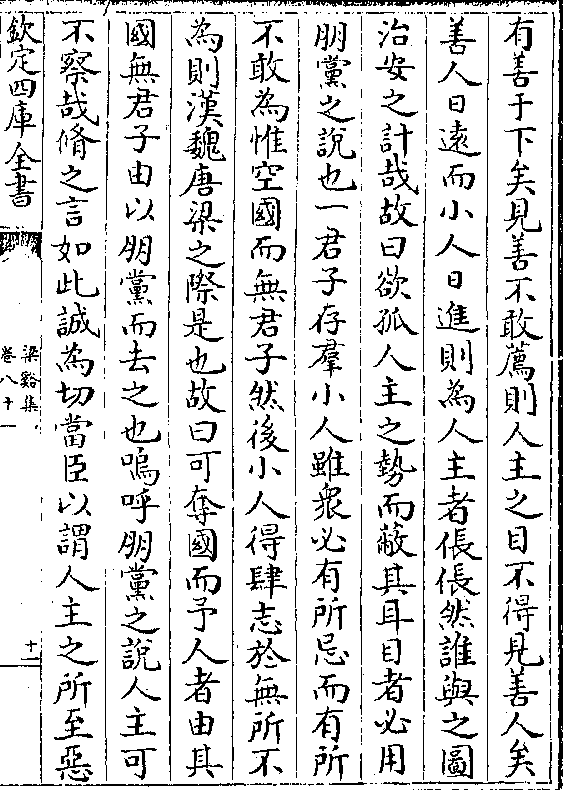 有善于下矣見善不敢薦則人主之目不得見善人矣
善人日遠而小人日進則為人主者倀倀然誰與之圖
治安之計哉故曰欲孤人主之勢而蔽其耳目者必用
朋黨之說也一君子存羣小人雖衆必有所忌而有所
不敢為惟空國而無君子然後小人得肆志於無所不
為則漢魏唐梁之際是也故曰可奪國而予人者由其
國無君子由以朋黨而去之也嗚呼朋黨之說人主可
不察哉脩之言如此誠為切當臣以謂人主之所至惡
欽定四庫全書
梁谿集
卷八十一
十一